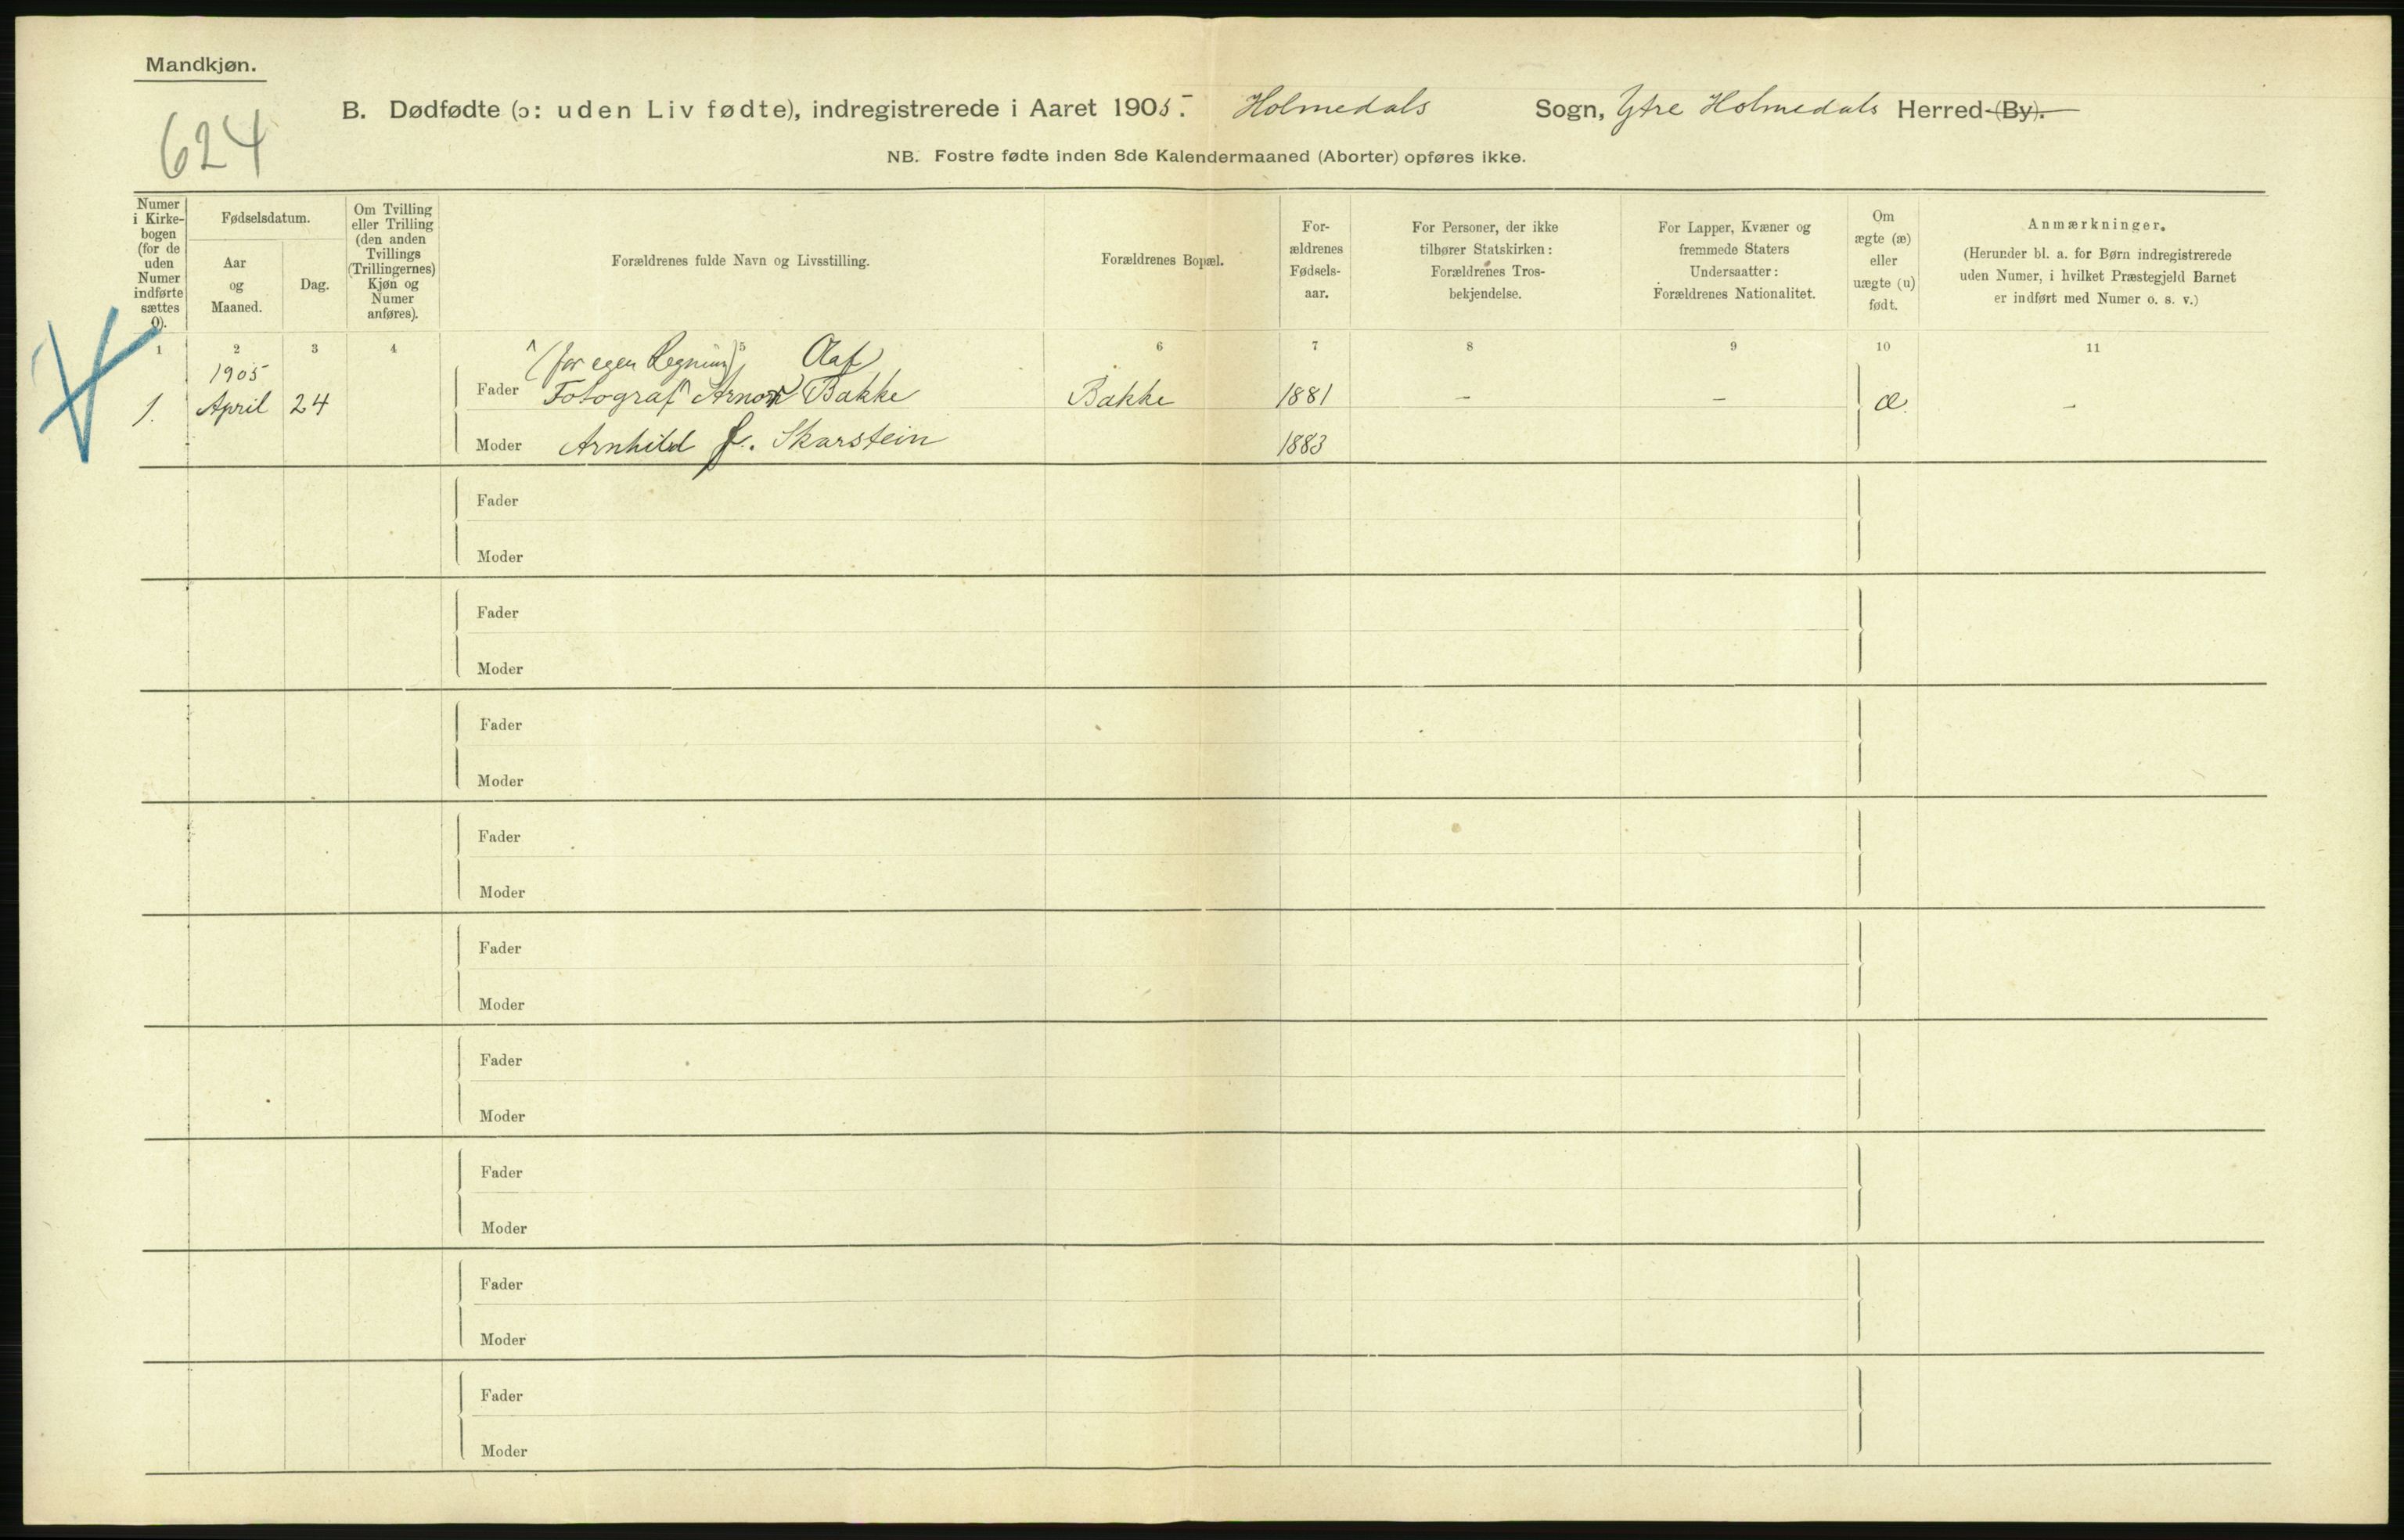 Mandkjøn.
624
B. Dødfødte (ɔ: uden Liv fødte), indregistrerede i Aaret 1905. Holmedals Sogn, Ytre Holmedals Herred (By).
NB. Fostre fødte inden 8de Kalendermaaned (Aborter) opføres ikke.
Numer
i Kirke-
bogen
(for de
uden
Numer
indførte
sættes
0).
Fødselsdatum.
Aar
og
Maaned.
Dag.
Om Tvilling
eller Trilling
(den anden
Tvillings
(Trillingernes)
Kjøn og
Numer
anføres).
Forældrenes fulde Navn og Livsstilling.
Forældrenes Bopæl.
For-
ældrenes
Fødsels-
aar.
For Personer, der ikke
tilhører Statskirken:
Forældrenes Tros-
bekjendelse.
For Lapper, Kvæner og
fremmede Staters
Undersaatter:
Forældrenes Nationalitet.
Om
ægte (æ)
eller
uægte (u)
født.
Anmærkninger.
(Herunder bl. a. for Børn indregistrerede
uden Numer, i hvilket Præstegjeld Barnet
er indført med Numer o. s. v.)
1 2 3 4 5 6 7 8 9 10 11
1905 (for egen Regning) Olaf
1. April 24 Fader Fotograf Arnor Bakke Bakke 1881 - - æ. -
Moder Arnhild f. Skarstein 1883
Fader
Moder
Fader
Moder
Fader
Moder
Fader
Moder
Fader
Moder
Fader
Moder
Fader
Moder
Fader
Moder
Fader
Moder